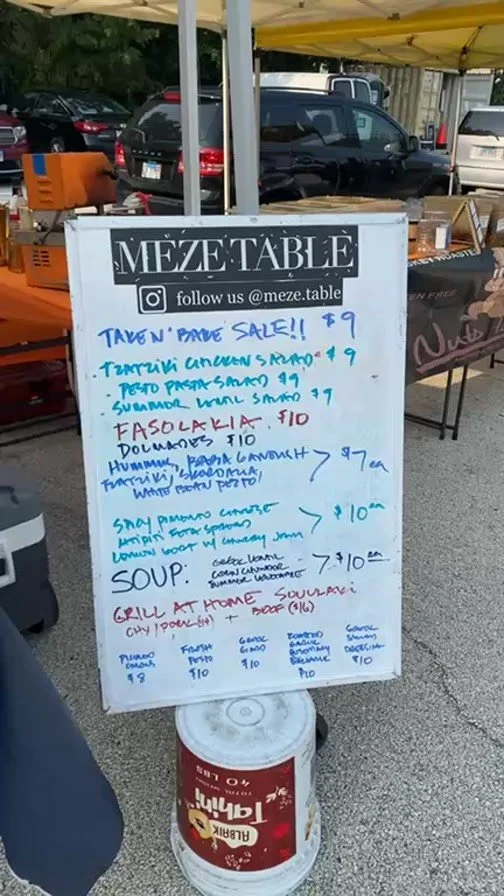 MEZE TABLE
follow us @meze.table
TAKE N' BAKE SALE!! $9
TZATZIKI CHICKEN SALAD $9
PESTO PASTA SALAD $9
SUMMER LENTIL SALAD $9
FASOLAKIA $10
DOLMADES $10
HUMMUS, BABA GANOUSH
TZATZIKI, SKORDALIA,
WHITE BEAN PESTO
> $7 ea
SPICY PIMENTO CHEESE
HTIPITI FETA SPREAD
LEMON GOAT W/ CHERRY JAM
> $10 ea
SOUP:
GREEK LENTIL
CORN CHOWDER
SUMMER VEGETABLE
> $10 ea
GRILL AT HOME SOUVLAKI
CHX/PORK + BEEF ($16)
PICKLED
ONIONS
$8
FRESH
PESTO
$10
GREEK
$10
ROASTED
GARLIC
ROSEMARY
BALSAMIC
$10
GREEK
DRESSING
$10
Nuts
ALBARK
Tahini
40 LBS